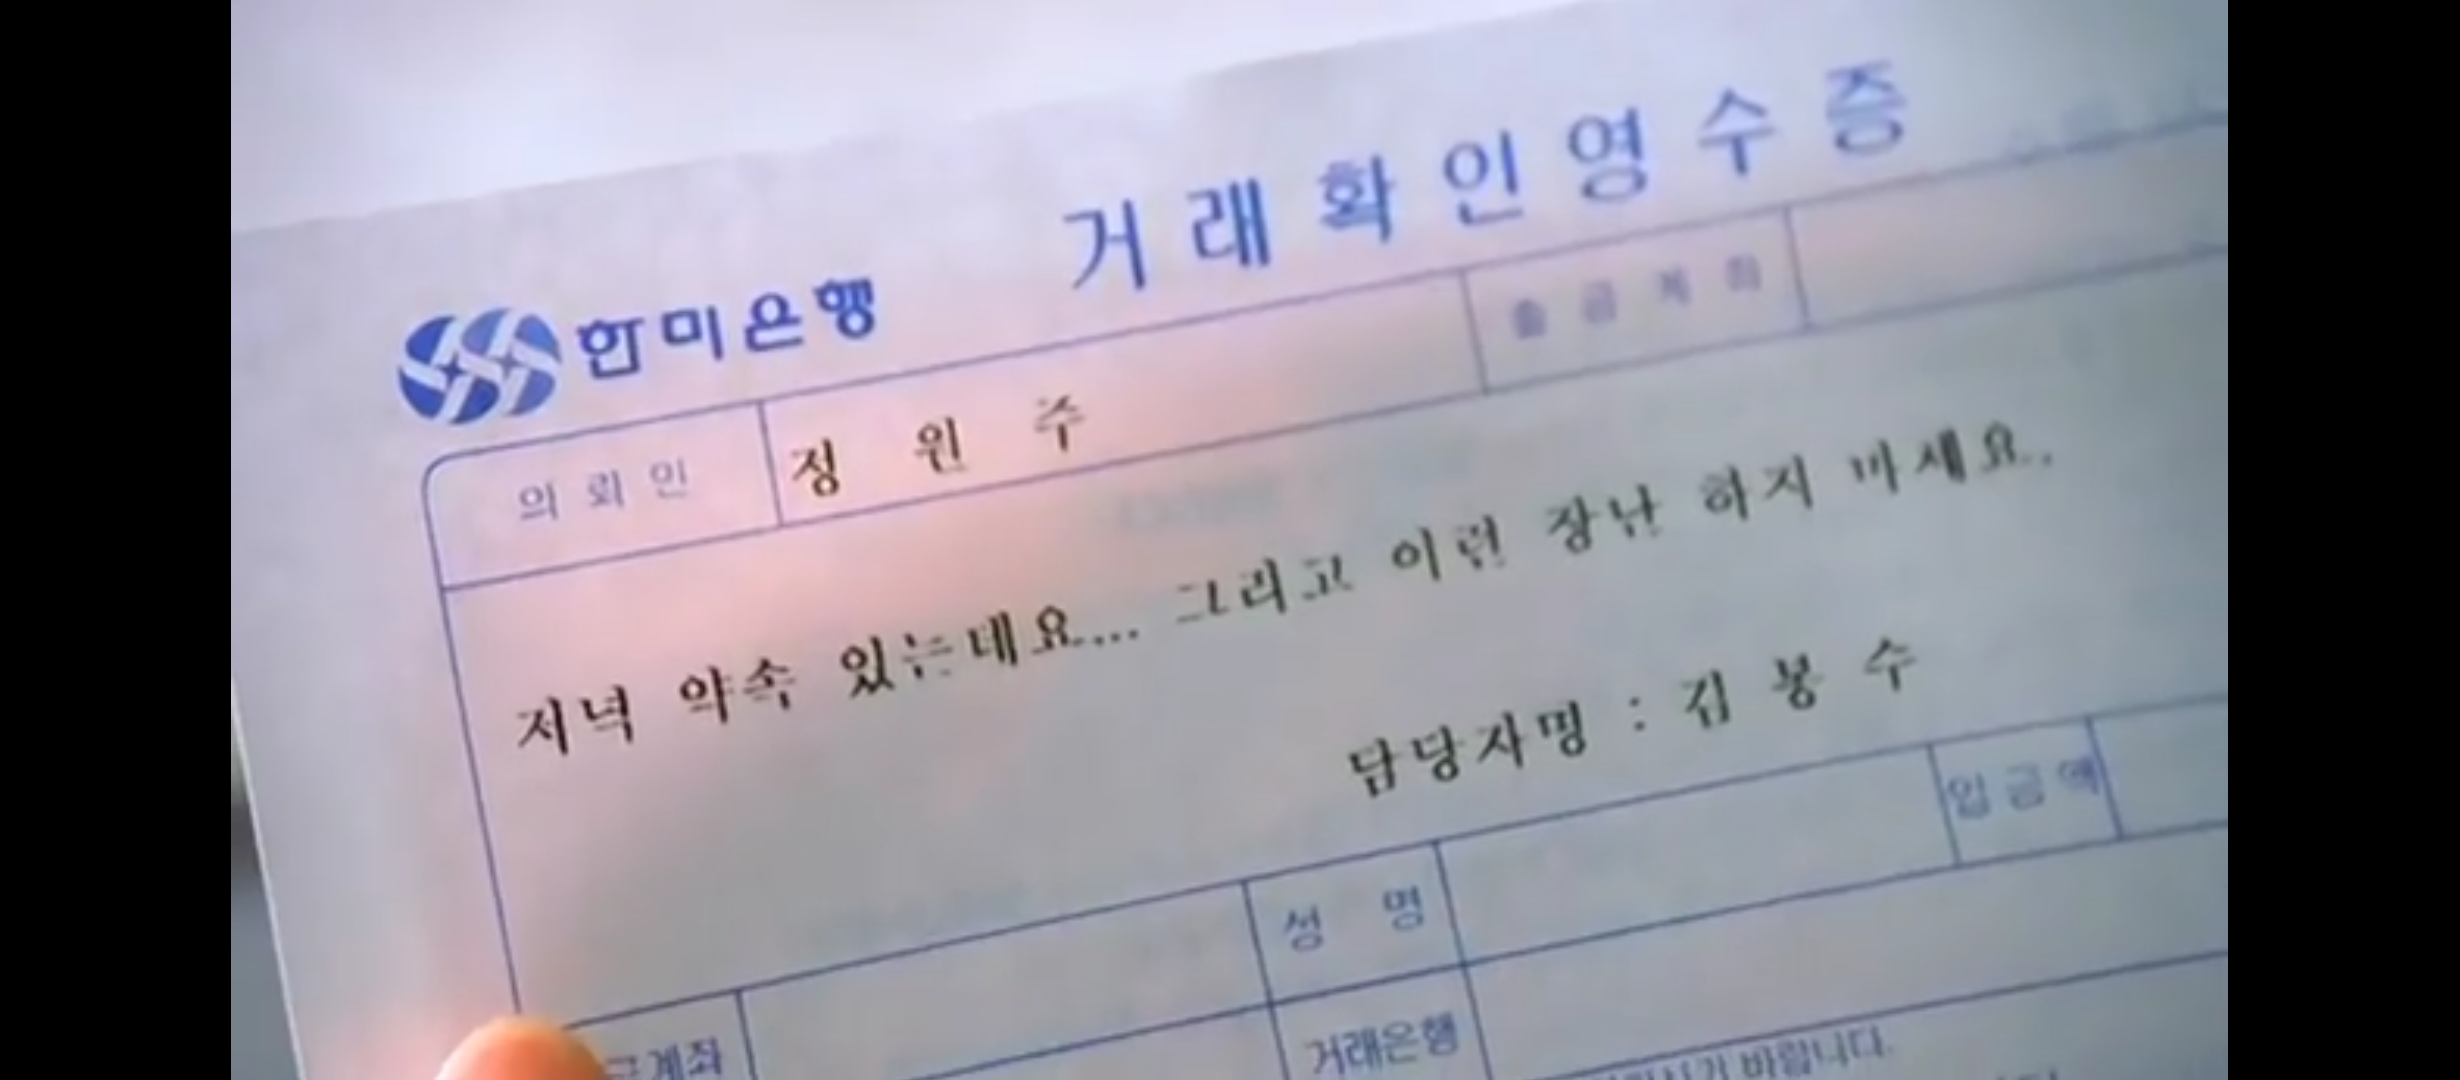 거래확인영수증
한미은행
의뢰인 정원주 출금계좌
저녁 약속 있는데요... 그리고 이런 장난 하지 마세요.
담당자명 : 김봉수
성명 입금액
계좌 거래은행
바랍니다.